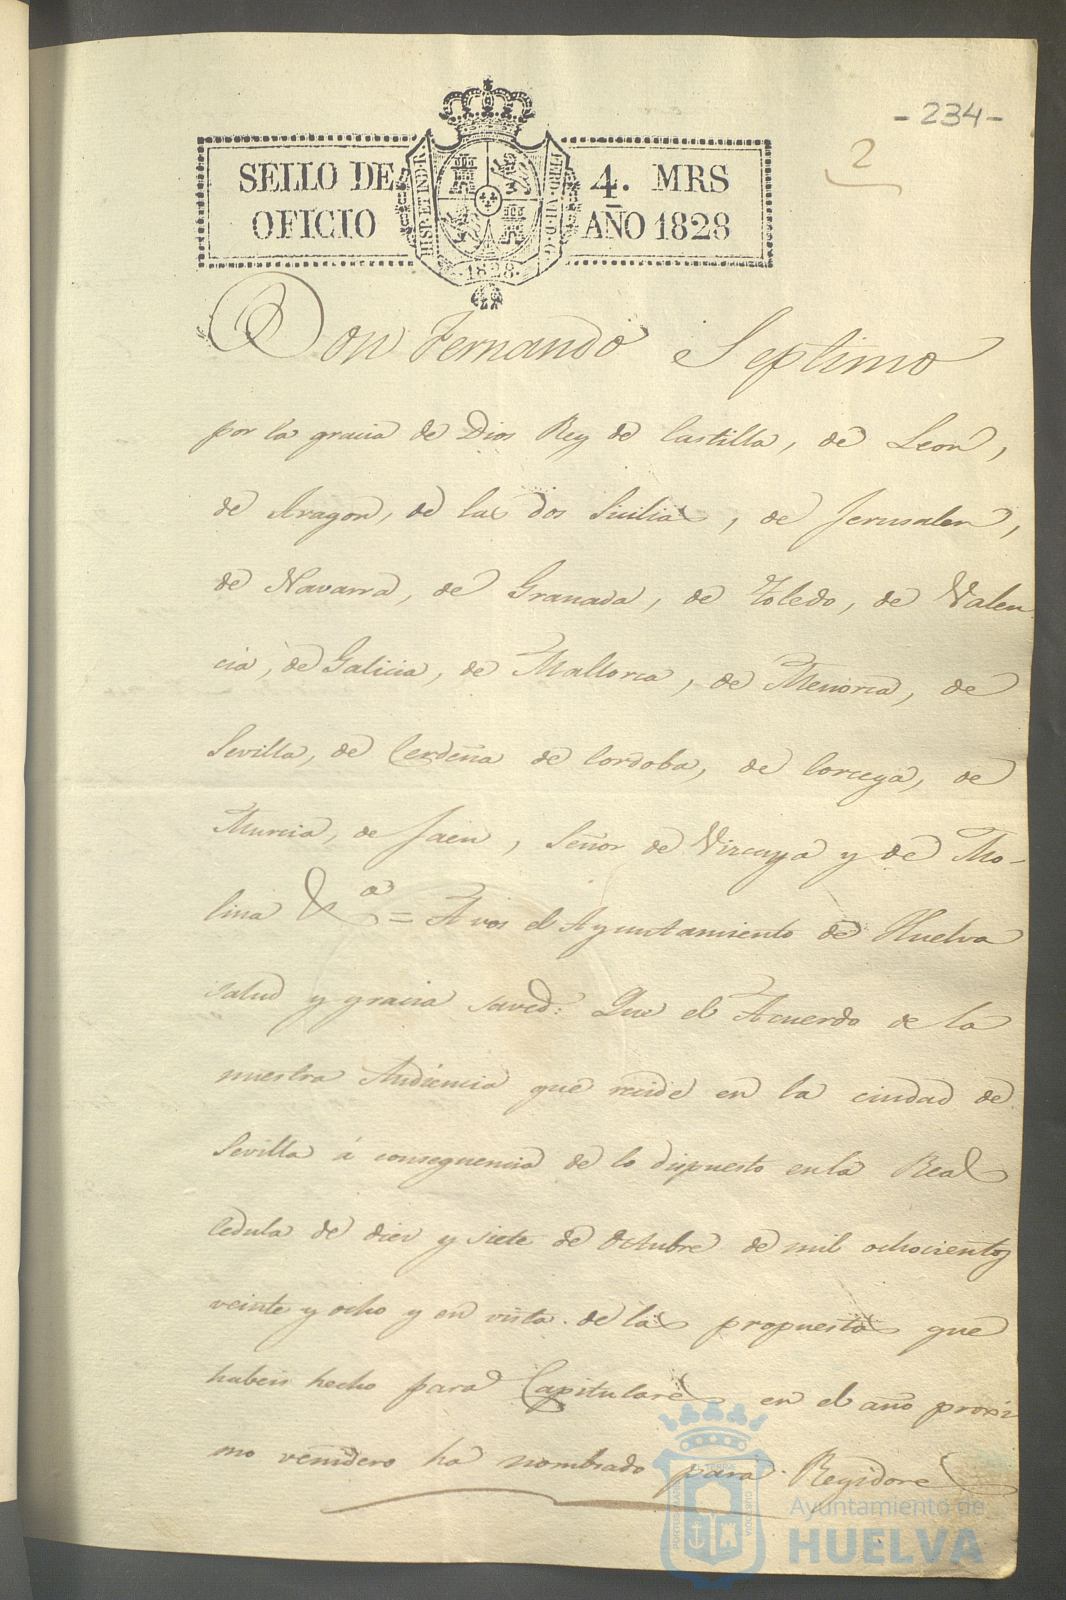 - 234 -
2
SELLO DE 4. MRS
OFICIO AÑO 1828
HISP. ET IND. R. FERD. VII. D. G.
1828.
Don Fernando Septimo
por la gracia de Dios Rey de Castilla, de Leon,
de Aragon, de las dos Sicilias, de Jerusalen,
de Navarra, de Granada, de Toledo, de Valen
cia, de Galicia, de Mallorca, de Menorca, de
Sevilla, de Cerdeña de Cordoba, de Corcega, de
Murcia, de Jaen, Señor de Vizcaya y de Mo-
lina &ª = A vos el Ayuntamiento de Huelva
salud y gracia saved: Que el Acuerdo de la
nuestra Audiencia que recide en la ciudad de
Sevilla á consequencia de lo dispuesto en la Real
cedula de diez y siete de Octubre de mil ochocientos
veinte y ocho y en vista de las propuestas que
habeis hecho para Capitulares en el año proxi
mo venidero ha nombrado para Regidores
Ayuntamiento de
HUELVA